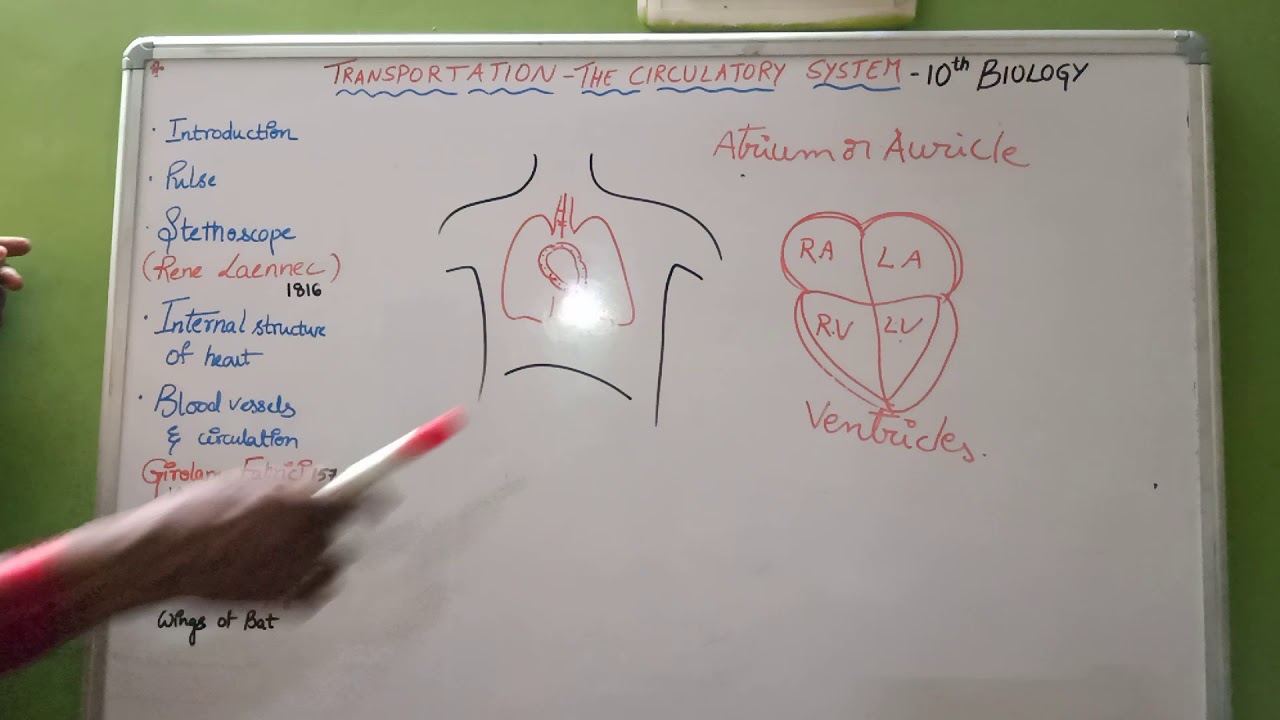 TRANSPORTATION - THE CIRCULATORY SYSTEM - 10th BIOLOGY
· Introduction
· Pulse
· Stethoscope
(Rene Laennec)
1816
· Internal structure
of heart
· Blood vessels
& circulation
Fabrici
Wings of Bat
Atrium or Auricle
RA LA
R.V LV
Ventricles.